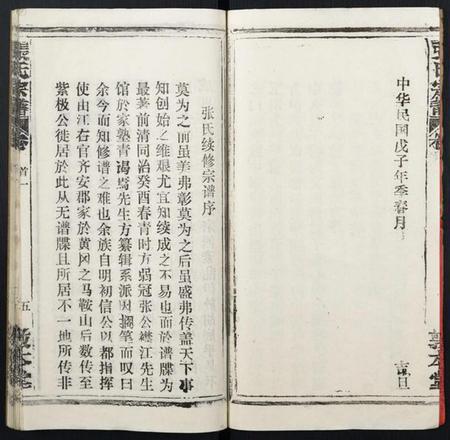 中华民国戊子年季春月
吉旦
张氏续修宗谱序
莫为之前虽美弗彰莫为之后虽盛弗传盖天下事
知创始之维艰尤宜知续成之不易也而于谱牒为
最著前清同治癸酉春青时方弱冠张公襟江先生
馆于家塾青谒焉先生方纂辑系派因搁笔而叹曰
余今而知修谱之难也余族自明初信公以都指挥
使由江右官齐安郡家于黄冈之马鞍山后数传至
紫极公徙居于此从无谱牒且所居不一地所传非
张氏宗谱
卷
首一
五
敦本堂
张氏宗谱
卷
敦本堂